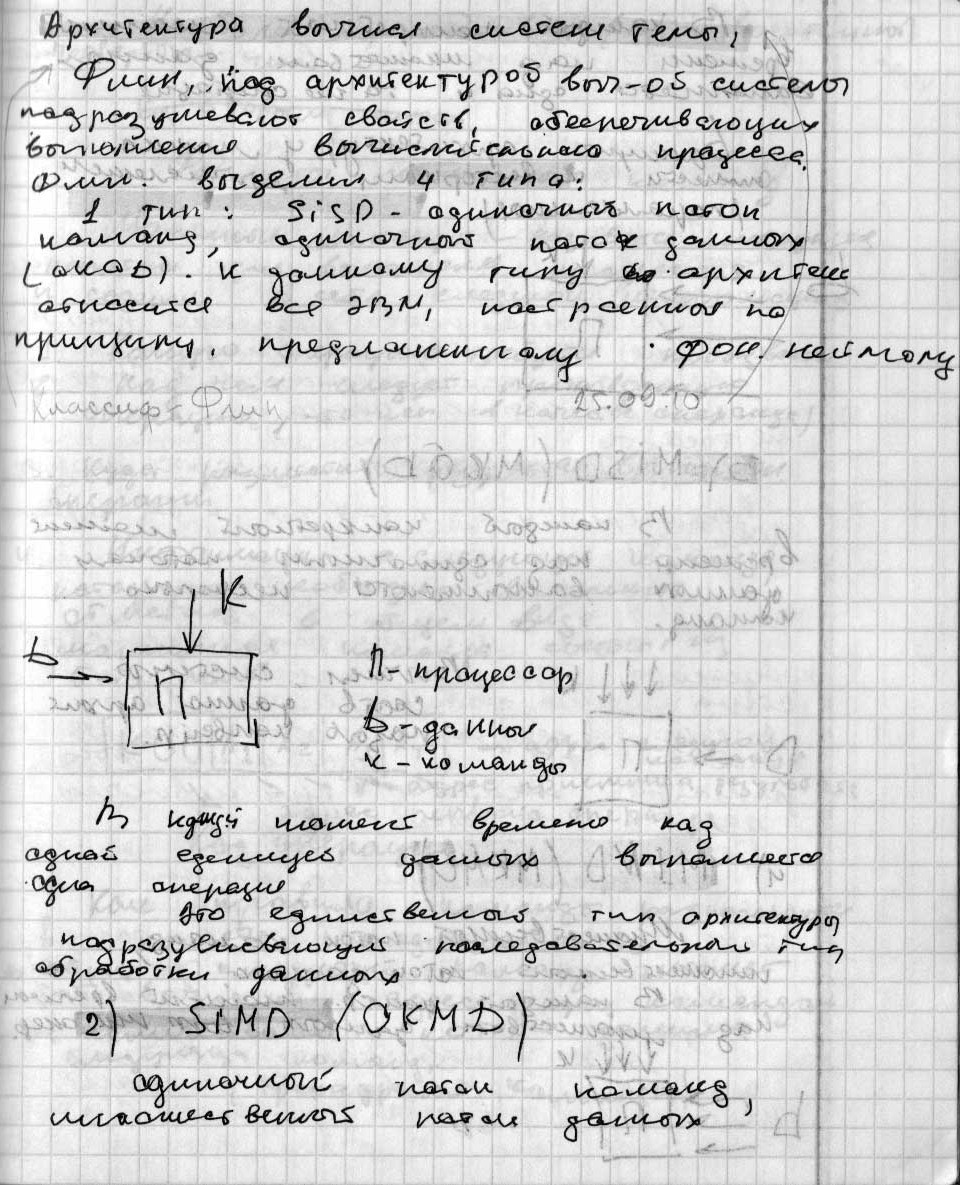 Архитектура вычисл систем темы,
Флин, под архитектурой выч-ой системы
подразумевают свойств, обеспечивающих
выполнение вычислительного процесса.
Флин. выделил 4 типа:
1 тип: SiSD - одиночный поток
команд, одиночный поток данных
(ОКОD). К данному типу архитек
относится все ЭВМ, построенные по
принципу, предложенному фон. нейману
Классиф- Флин 25.09.10
К
D
П
П - процессор
D - данные
К - команды
В кджый момент времено над
одной еденицей данных выполняется
одна операция
Это единственный тип архитектуры,
подразумевающий последовательный тип
обработки данных
2) SiMD (ОКМD)
одиночный поток команд,
множественный поток данных